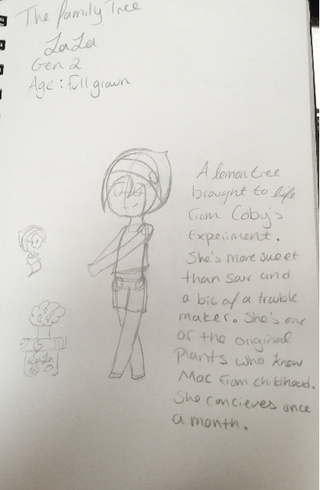 The Family Tree
LaLa
Gen 2
Age: Full grown
A lemon tree
brought to life
from Coby's
Experiment.
She's more sweet
than sour and
a bit of a trouble
maker. She's one
of the original
Plants who knew
Mac from childhood.
She concieves once
a month.
LaLa